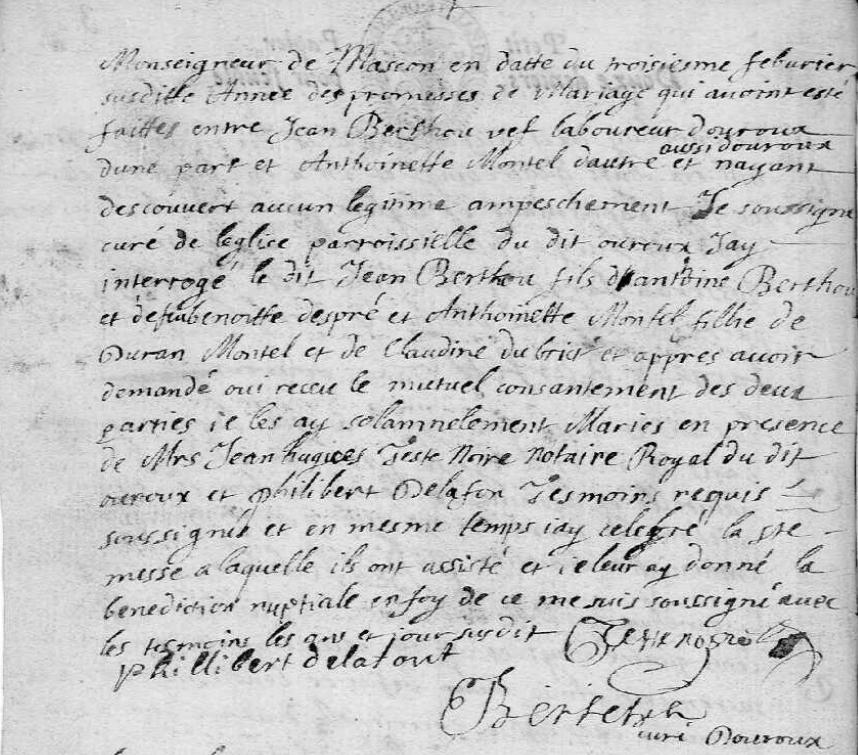 Monseigneur de Mascon en datte du troisiesme feburier
susditte Annee des promesses de Mariage qui avoint esté
faittes entre Jean Berthou vef laboureur d'ouroux
dune part et Anthoinette Montel dautre aussi d'ouroux et nayant
descouvert aucun legitime ampeschement Je soussigné
curé de leglise parroissielle du dit ouroux Jay
interrogé le dit Jean Berthou fils d'antoine Berthou
et de benoitte despré et Anthoinette Montel fillie de
Duran Montel et de Claudine duboist et appres avoir
demandé oui receu le mutuel consantement des deux
parties ie les ay solamnelement Maries en presence
de Mrs Jean hugues Teste Noire Notaire Royal du dit
ouroux et philibert Delafon Tesmoins requis
soussignés et en mesme temps iay celebré la ste
messe a laquelle ils ont assisté et ie leur ay donné la
benediction nuptiale en foy de ce me suis soussigné avec
les tesmoins les ans et jour susdit Testenoire
phillibert delafont
curé Douroux